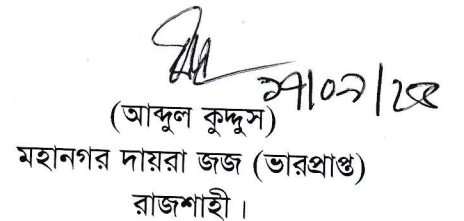 (আব্দুল কুদ্দুস)
মহানগর দায়রা জজ (ভারপ্রাপ্ত)
রাজশাহী।